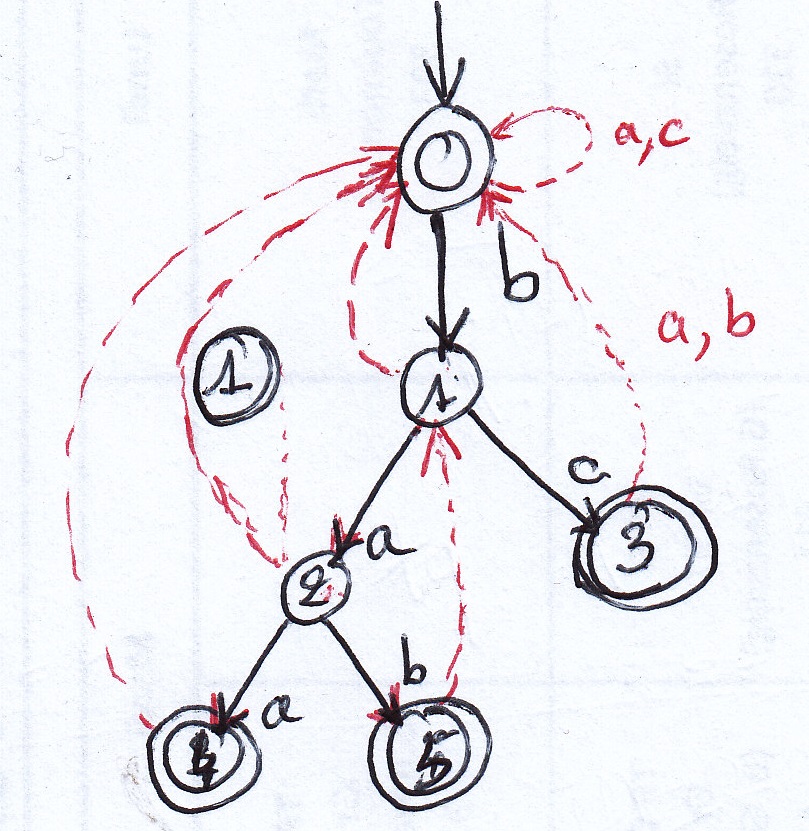 a,c
b
a, b
1
1
3
a
2
b
a
4
5